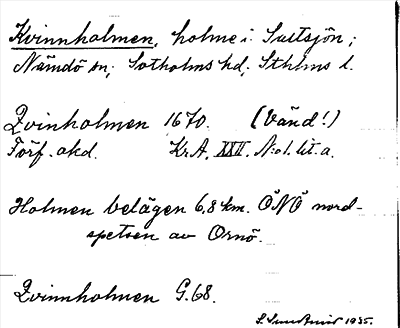 Kvinnholmen, holme i Saltsjön;
Nämdö sn; Sotholms hd; Sthlms l.
Qvinholmen 1670. (Vänd!)
Förf. okd. Kr.A. XXII. N:o 1. lit. a.
Holmen belägen 6,8 km. ÖNÖ nord-
spetsen av Ornö.
Qvinnholmen G. 68.
1935.